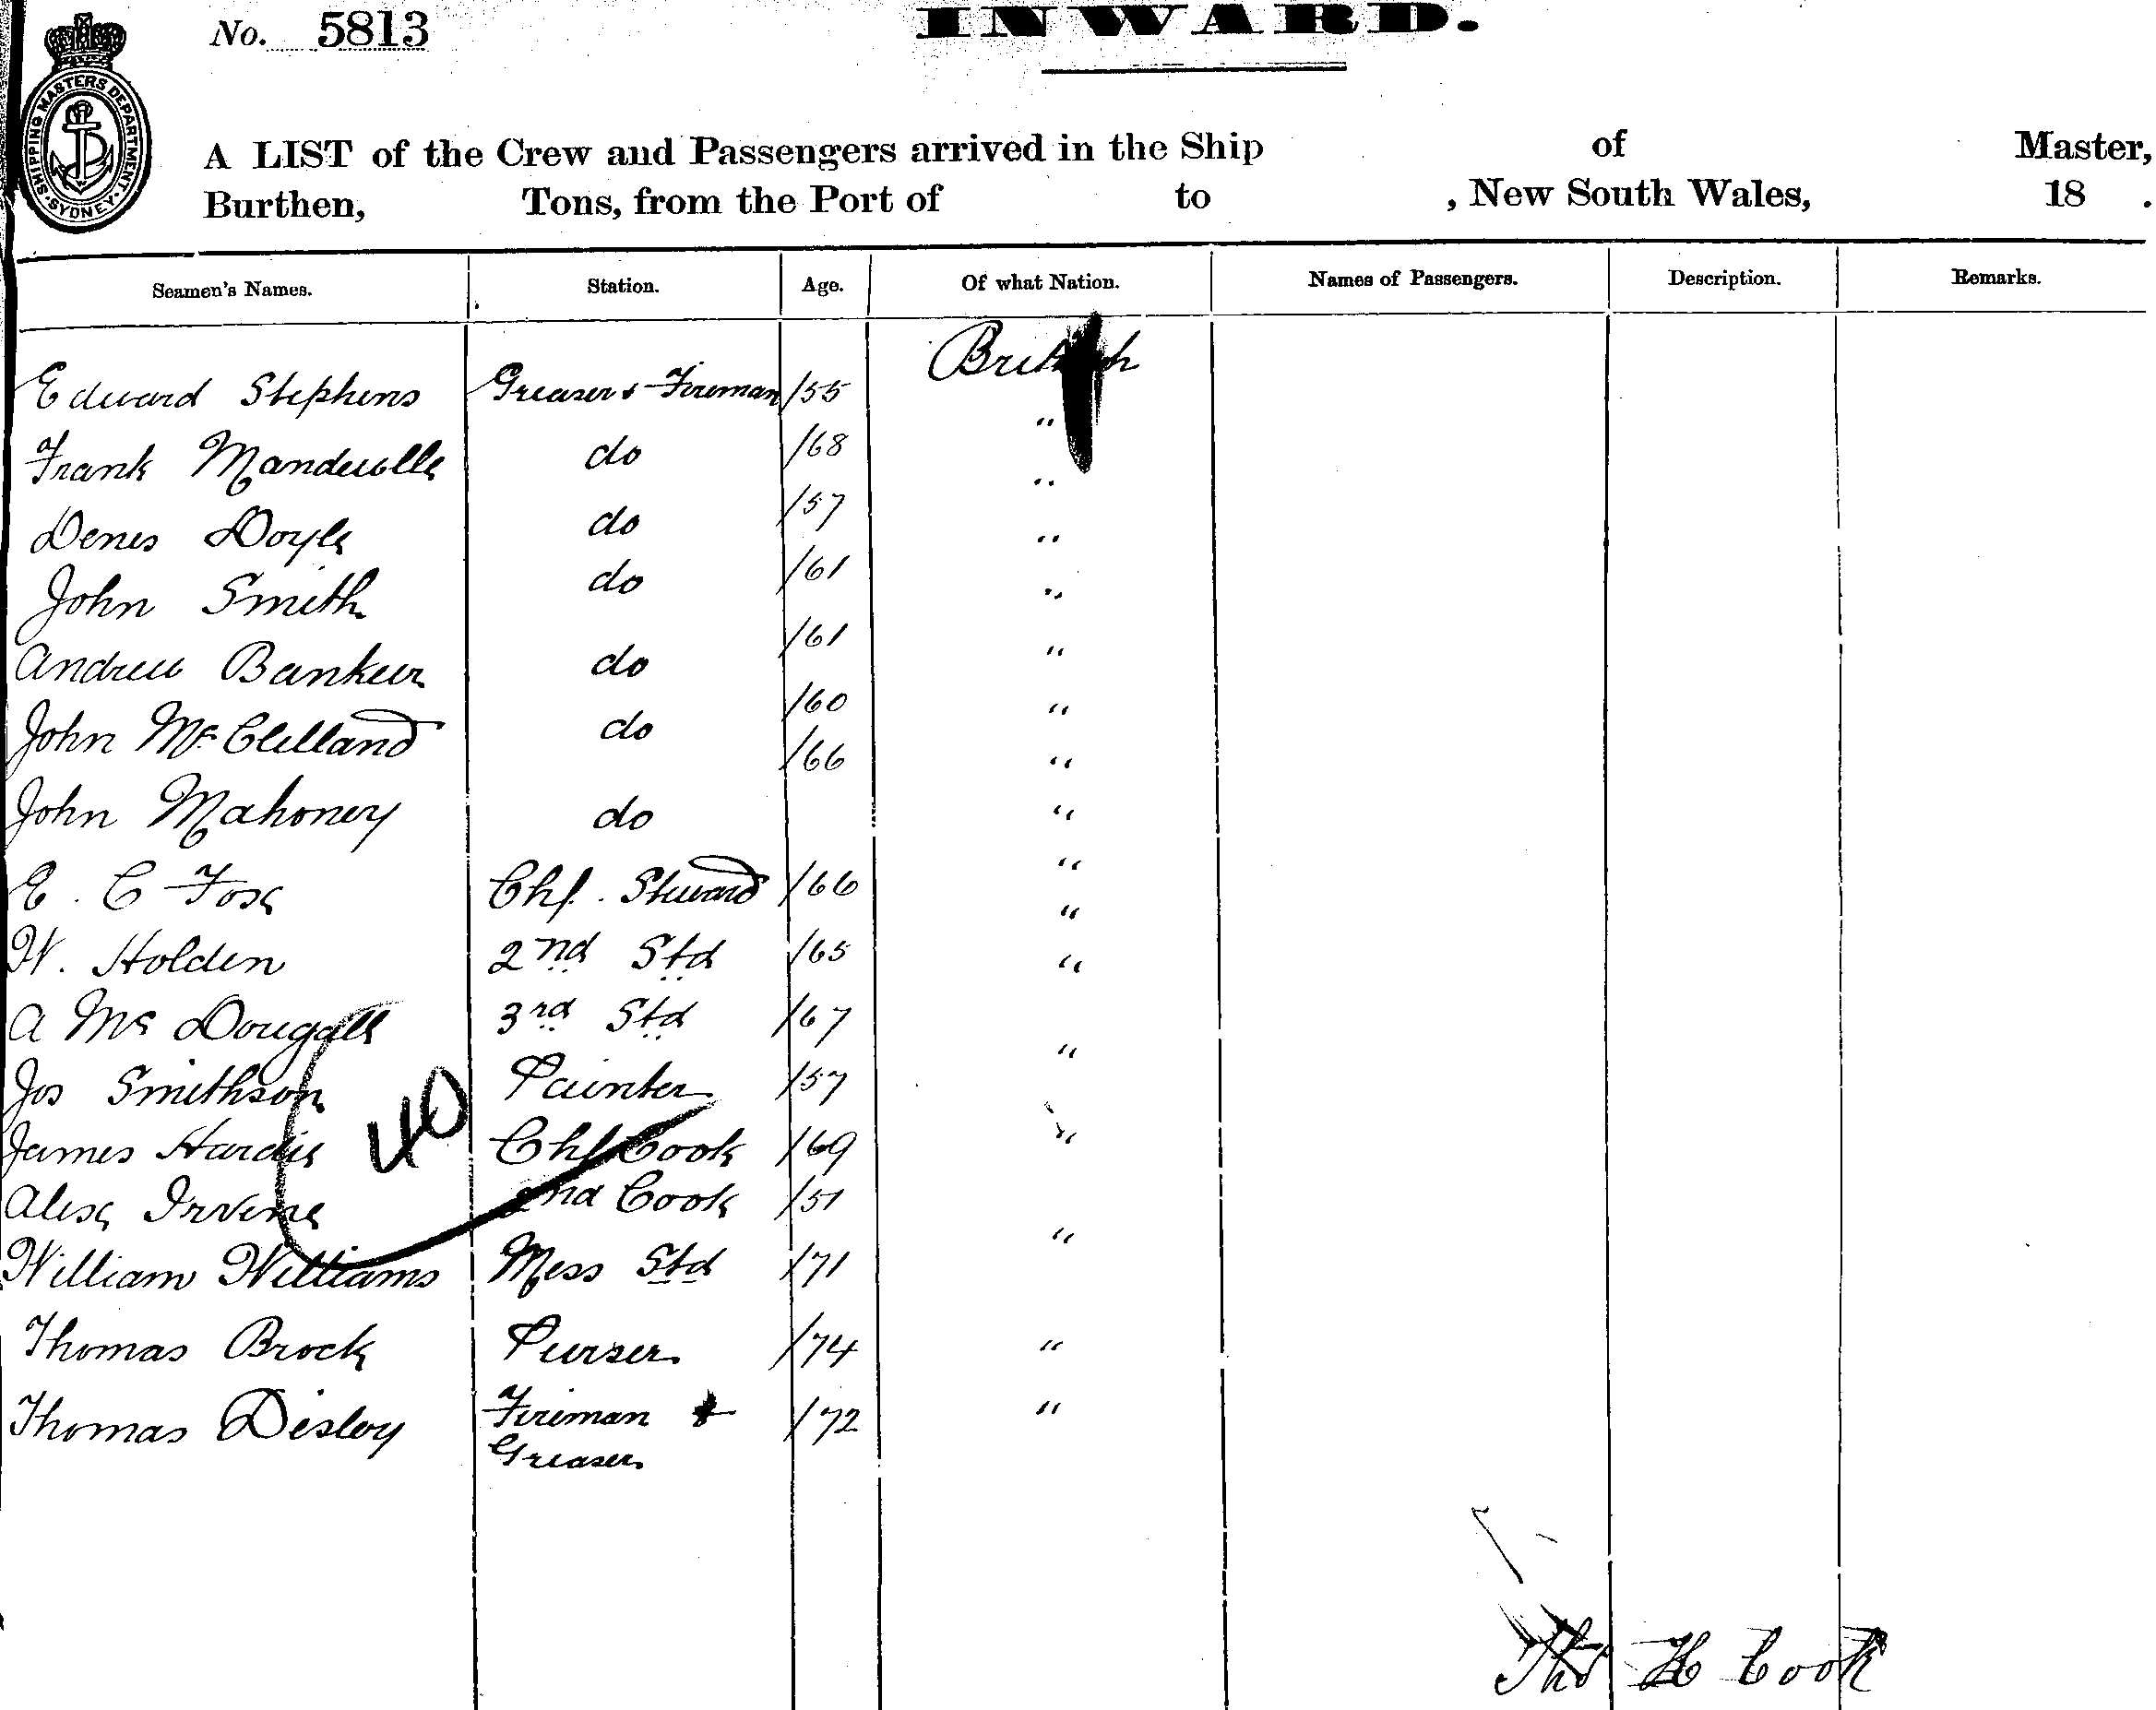 No. 5813
INWARD.
SHIPPING MASTERS DEPARTMENT. SYDNEY.
A LIST of the Crew and Passengers arrived in the Ship of Master,
Burthen, Tons, from the Port of to , New South Wales, 18 .
Seamen's Names. Station. Age. Of what Nation. Names of Passengers. Description. Remarks.
Edward Stephens Greaser & Fireman /55 British
Frank Mandeville do /68 "
Denis Doyle do /57 "
John Smith do /61 "
Andrew Bankier do /61 "
John McClelland do /60 "
John Mahoney do /66 "
E. C Fox Chf. Steward /66 "
W. Holden 2nd Std /65 "
A Mc Dougall 3rd Std /67 "
Jos Smithson Painter /57 "
James Hardie Chf Cook /69 "
40
Alex Irvine 2nd Cook /51 "
William Williams Mess Std /71 "
Thomas Brock Purser /74 "
Thomas Disley Fireman & /72 "
Greaser
Thos H Cook